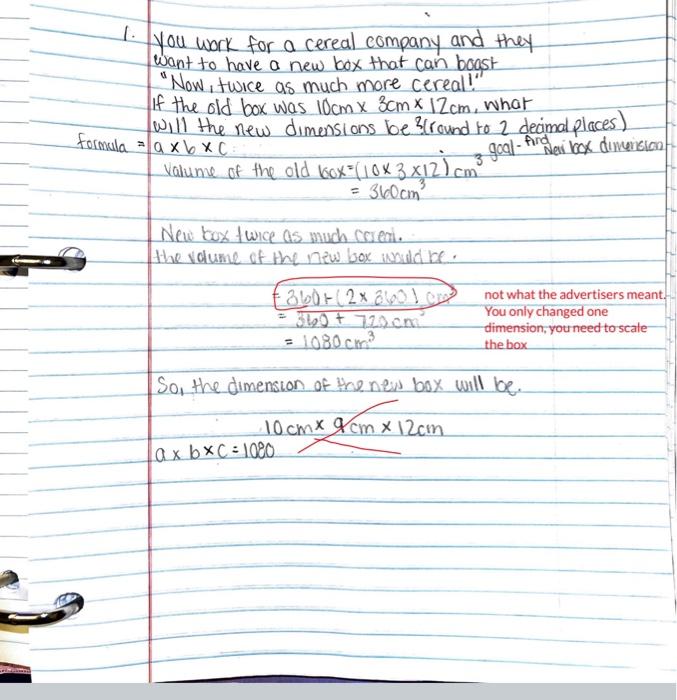 1. You work for a cereal company and they
want to have a new box that can boast
"Now, twice as much more cereal!"
If the old box was 10cm x 3cm x 12cm, what
will the new dimensions be? (round to 2 decimal places)
formula = a x b x c
goal - find New box dimension
Volume of the old box = (10 x 3 x 12) cm³
= 360cm³
New box twice as much cereal.
the volume of the new box would be.
= 360 + (2 x 360) cm³
= 360 + 720 cm³
= 1080 cm³
not what the advertisers meant.
You only changed one
dimension, you need to scale
the box
So, the dimension of the new box will be.
10cm x 9cm x 12cm
a x b x c = 1080